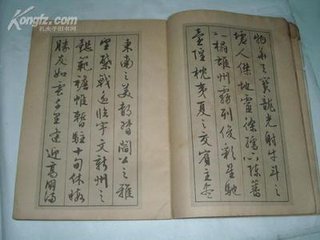 Kongfz.com
孔夫子旧书网
物華天寶龍光射牛斗之
墟人傑地靈徐孺下陳蕃
之榻雄州霧列俊彩星馳
臺隍枕夷夏之交賓主盡
東南之美都督閻公之雅
望棨戟遙臨宇文新州之
懿範襜帷暫駐十旬休暇
勝友如雲千里逢迎高朋滿